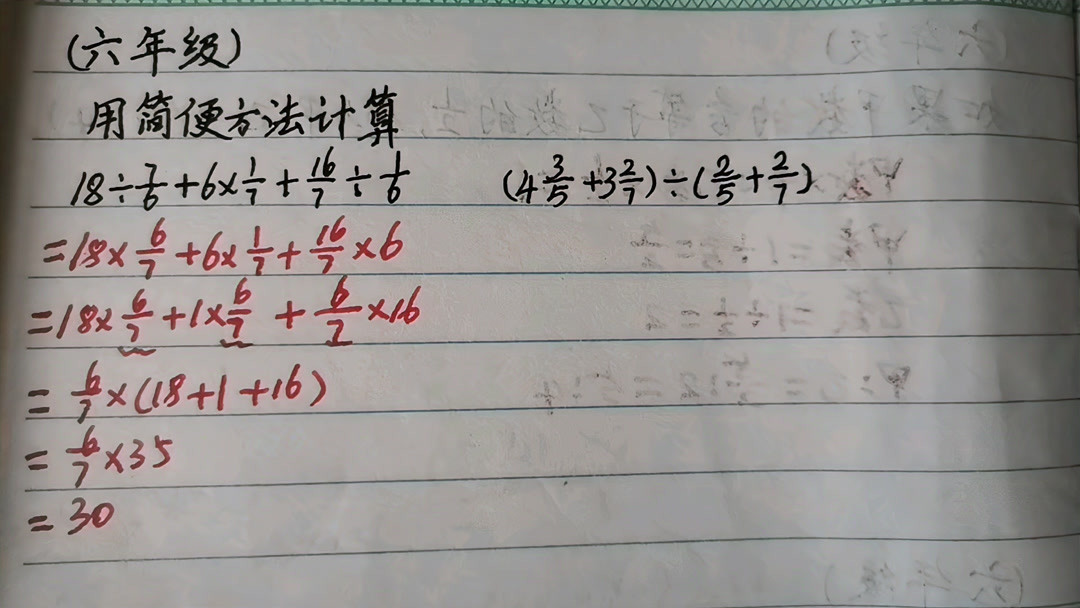 (六年级)
用简便方法计算
18÷7/6+6×1/7+16/7÷1/6 (4 3/5+3 2/7)÷(2/5+2/7)
=18×6/7+6×1/7+16/7×6
=18×6/7+1×6/7+6/7×16
=6/7×(18+1+16)
=6/7×35
=30